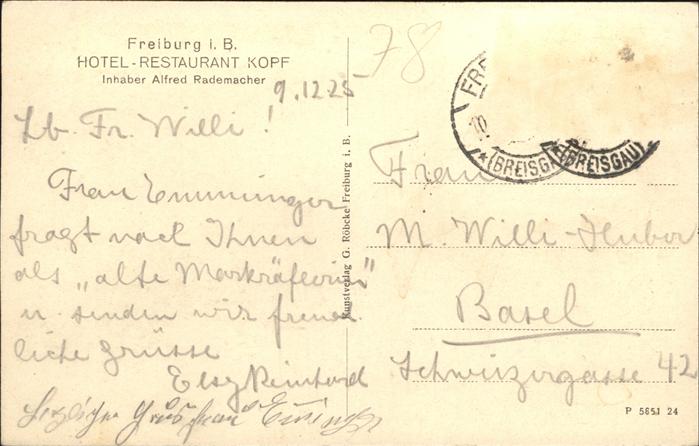 Freiburg i. B.
HOTEL-RESTAURANT KOPF
Inhaber Alfred Rademacher
9.12.25
Lb. Fr. Willi!
Frau Emminger
fragt nach Ihnen
als „alte Markräflerin"
u. senden wir freund
liche Grüsse
Elsy Reinhard
Herzlichen Gruss Frau
Kunstverlag G. Röbcke Freiburg i. B.
78
(BREISGAU)
Frau
M. Willi-Huber
Basel
Schweizergasse 42
P 5651 24